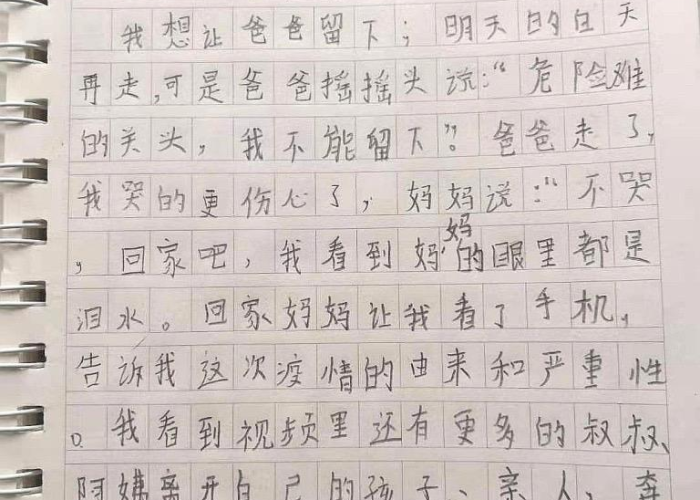 我想让爸爸留下；明天的白天
再走，可是爸爸摇摇头说：“危险难
的关头，我不能留下”。爸爸走了，
我哭的更伤心了，妈妈说：“不哭
，回家吧，我看到妈妈的眼里都是
泪水。回家妈妈让我看了手机，
告诉我这次疫情的由来和严重性
。我看到视频里还有更多的叔叔、
阿姨离开自己的孩子、亲人、奔